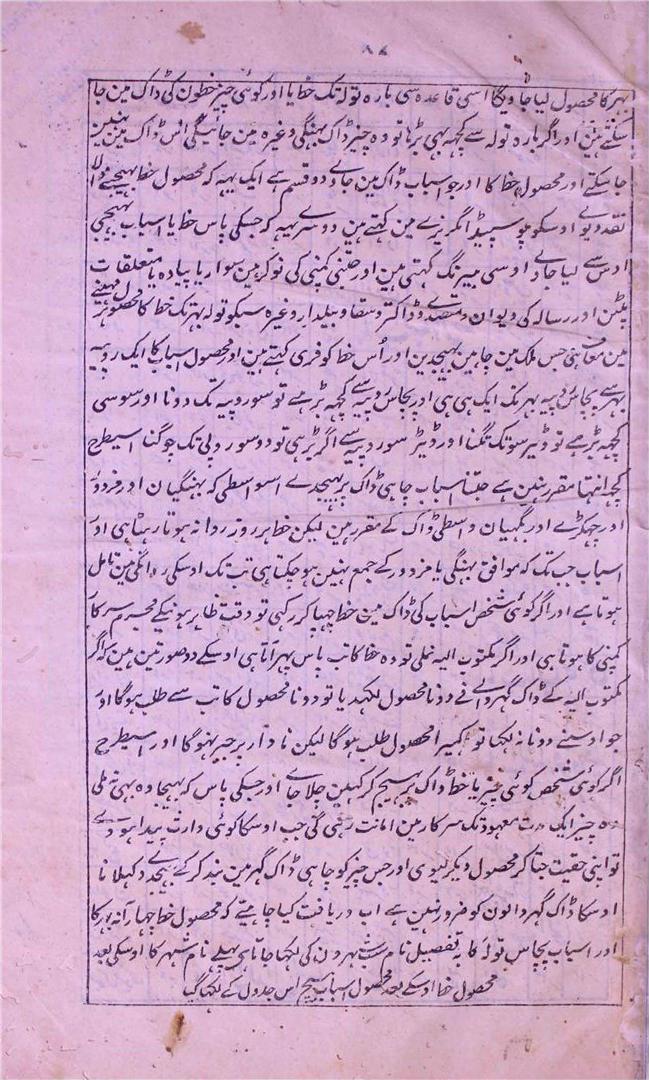 ۸۷
بھر کا محصول لیا جاویگا اسی قاعدہ سی بارہ تولہ تک خط یا اور کوئی چیز خطون کی ڈاک مین جا
سکتے ہین اور اگر بارہ تولہ سے کچھہ بہی بڑہا تو وہ چیز ڈاک بہنگی وغیرہ مین جائیگی اس ڈاک مین نہین
جا سکتے اور محصول خط کا اور جو اسباب ڈاک مین جاوے دو قسم ہے ایک یہہ کہ محصول خط بہیجنے والا
نقد دیوے اوسکو پوسپیڈ انگریزے مین کہتے ہین دوسرے یہہ کہ جسکی پاس خط یا اسباب بہیجی
اوس سے لیا جاے اوسی بیرنگ کہتی ہین اور جتنی کمپنی کی نوکر ہین سوار یا پیادہ یا متعلقات
پلٹن اور رسالہ کی دیوان و متصدے و ڈاکتر و سقا و بیلدار وغیرہ سبکو تولہ بہر تک خط کا محصول ہر مہینے
مین معاف ہی جس ملک مین چاہین بہیجدین اور اُس خط کو فری کہتے ہین اور محصول اسباب کا ایک روپیہ
بہر سے پچاس روپیہ بہر تک ایک ہی ہی اور پچاس روپیے سے کچہہ بڑہے تو سو روپیہ تک دونا اور سو سی
کچہہ بڑہے تو ڈیڑ سو تک تگنا اور ڈیڑ سو روپیہ سے اگر بڑہی تو دو سو روپی تک چوگنا اسیطرح
کچہہ انتہا مقرر نہین ہے جتنا اسباب چاہی ڈاک پر بہیجدے اسواسطی کہ بہنگیان اور مزدور
اور چہکڑے اور بگہیان واسطی ڈاک کے مقرر ہین لیکن خط ہر روز روانہ ہوتا رہتا ہی اور
اسباب جب تک کہ موافق بہنگی یا مزدور کے جمع نہین ہو چکتا ہی تب تک اوسکی روانگی مین تامل
ہوتا ہے اور اگر کوئی شخص اسباب کی ڈاک مین خط چہپا کر رکہی تو وقت ظاہر ہونیکے مجرم سرکار
کمپنی کا ہوتا ہی اور اگر مکتوب الیہ نملی تو وہ خط کاتب پاس پہر آتا ہی اوسکے دو صورتین ہین کہ اگر
مکتوب الیہ کے ڈاک گہر والے نے دونا محصول لکہدیا تو دونا محصول کاتب سے طلب ہوگا اور
جو اوسنے دونا نہ لکہا تو اکہیرا محصول طلب ہوگا لیکن نادار پر جبر نہوگا اور اسیطرح
اگر کوئی شخص کوئی چیز یا خط ڈاک پر بہیج کر کہین چلا جاے اور جسکی پاس کہ بہیجا وہ بہی نہ ملی
وہ چیز ایک مدت معہود تک سرکار مین امانت رہی گی جب اوسکا کوئی وارث پیدا ہووے
تو اپنی حقیت جتا کر محصول دیکر لیوی اور جس چیز کو چاہی ڈاک گہر مین بند کر کے بہیجدے دکہلانا
اوسکا ڈاک گہر والون کو ضرور نہین ہے اب دریافت کیا چاہیے کہ محصول خط چہار آنہ بہر کا
اور اسباب پچاس تولہ کا بہ تفصیل نام سب شہرون کی لکہا جاتا ہی پہلے نام شہر کا اوسکی بعد
محصول خط اوسکے بعد محصول اسباب بیچ اس جدول کے لکہا گیا